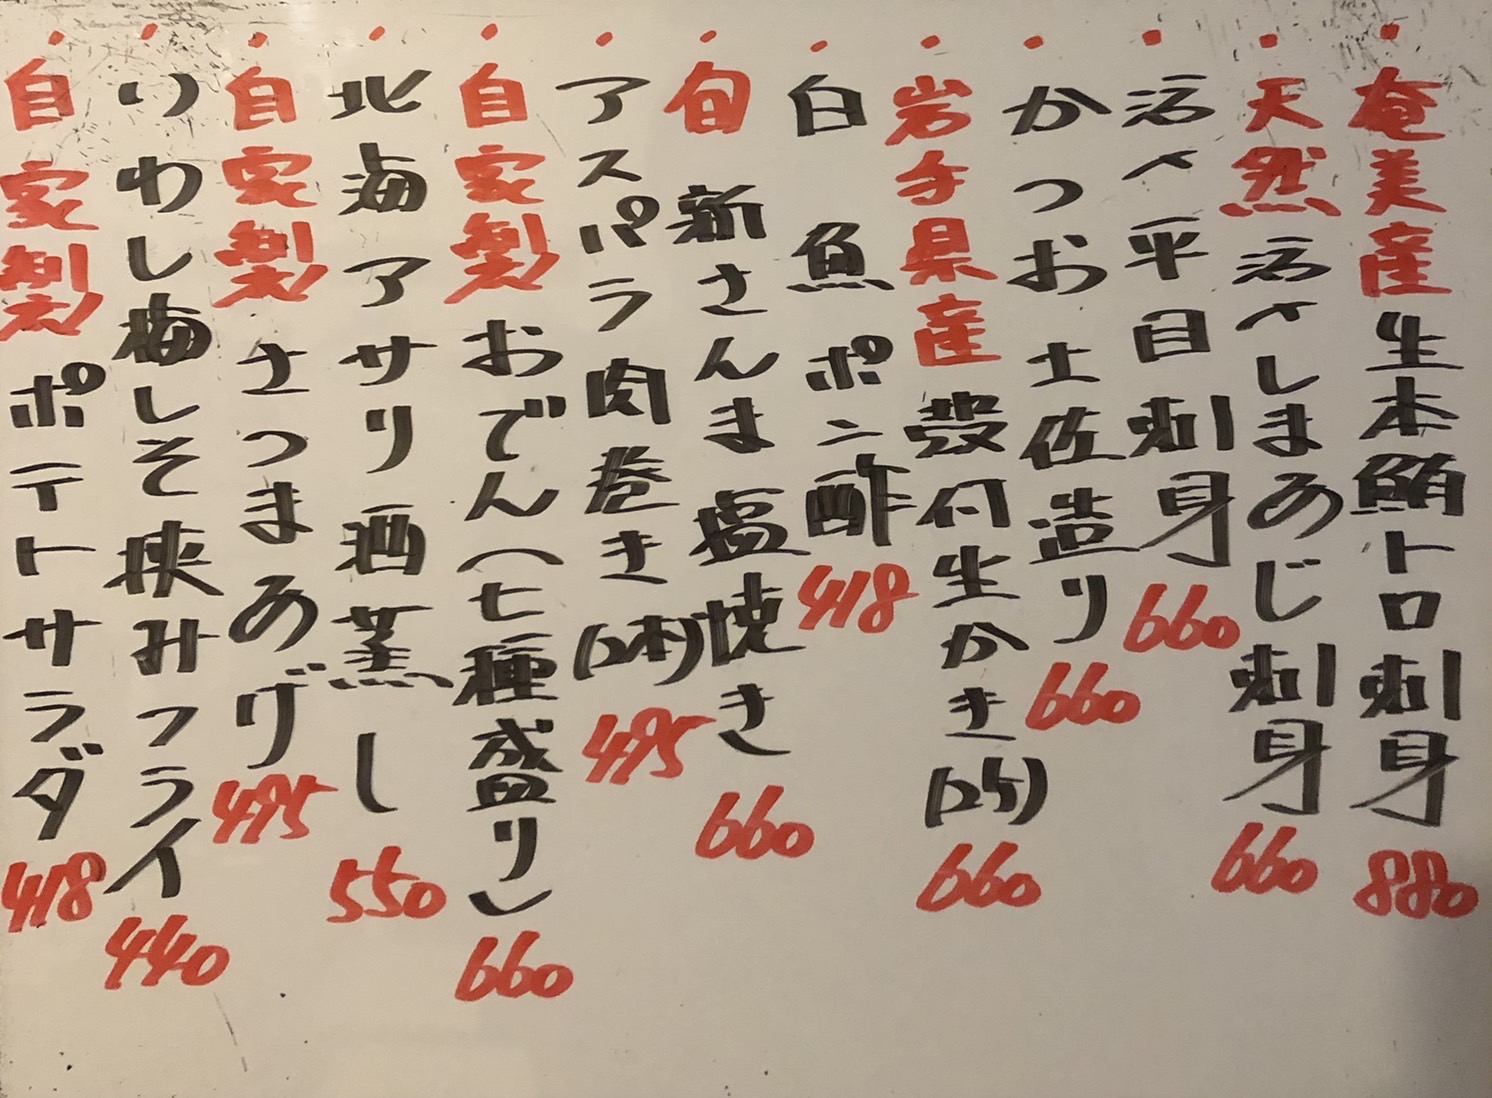 ・奄美産 生本鮪トロ刺身 880
・天然 活〆しまあじ刺身 660
・活〆平目刺身 660
・かつお土佐造り 660
・岩手県産 殻付生かき(2ケ) 660
・白魚ポン酢 418
・旬 新さんま塩焼き 660
・アスパラ肉巻き(2本) 495
・自家製おでん(七種盛り) 660
・北海アサリ酒蒸し 550
・自家製さつまあげ 495
・いわし梅しそ挟みフライ 440
・自家製ポテトサラダ 418